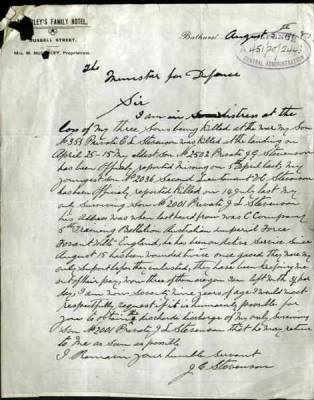 SLEY'S FAMILY HOTEL,
RUSSELL STREET.
MRS. M. Proprietress.
Bathurst August
CENTRAL ADMINISTRATION
The
Minister for Defence
Sir
I am in distress at the
loss of my three Sons being killed at the war my Son
No 353 Private E L Stevenson was killed at the landing on
April 25 - 15 My eldest Son No 2502 Private J G Stevenson
has been Officially reported missing on 5 April last, my
youngest Son No 2036 Second Lieutenant H C Stevenson
has been Officially reported killed on 14 July last My
only Surviving Son No 2001 Private J L Stevenson
his address was when last heard from was C Company
5th Training Battalion Australian Imperial Force
Fovant Wilts England, he has been on Active Service Since
August 15 has been wounded twice once gassed they were my
only support before they enlisted, they have been helping me
out of their pay, now three of them are gone I am left with 3/ per
day, I am now Seventy nine years of age I would most
respectfully request if it is humanly possible for
you to obtain the discharge of my only Surviving
Son No 2001 Private J L Stevenson that he may return
to me as soon as possible
I Remain your humble servant
J C Stevenson